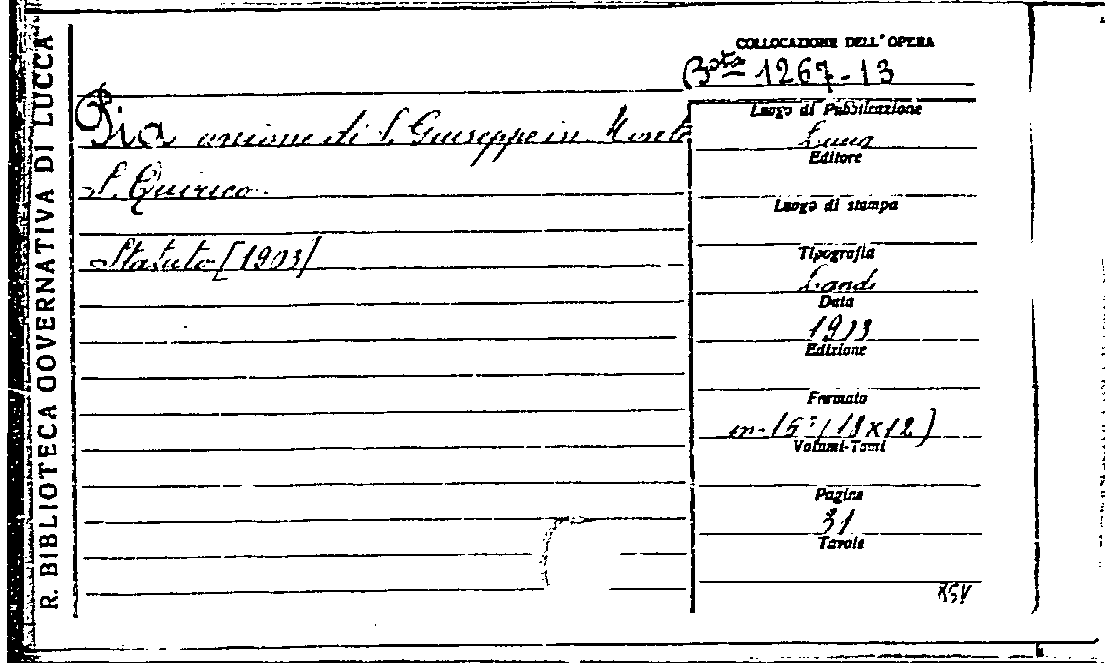 R. BIBLIOTECA GOVERNATIVA DI LUCCA
COLLOCAZIONE DELL'OPERA
Bta 1267-13
Pia unione di S. Giuseppe in Monte
S. Quirico.
Statuto [1903]
Luogo di Pubblicazione
Lucca
Editore
Luogo di stampa
Tipografia
Landi
Data
1903
Edizione
Formato
in-16° (18x12)
Volumi-Tomi
Pagine
31
Tavole